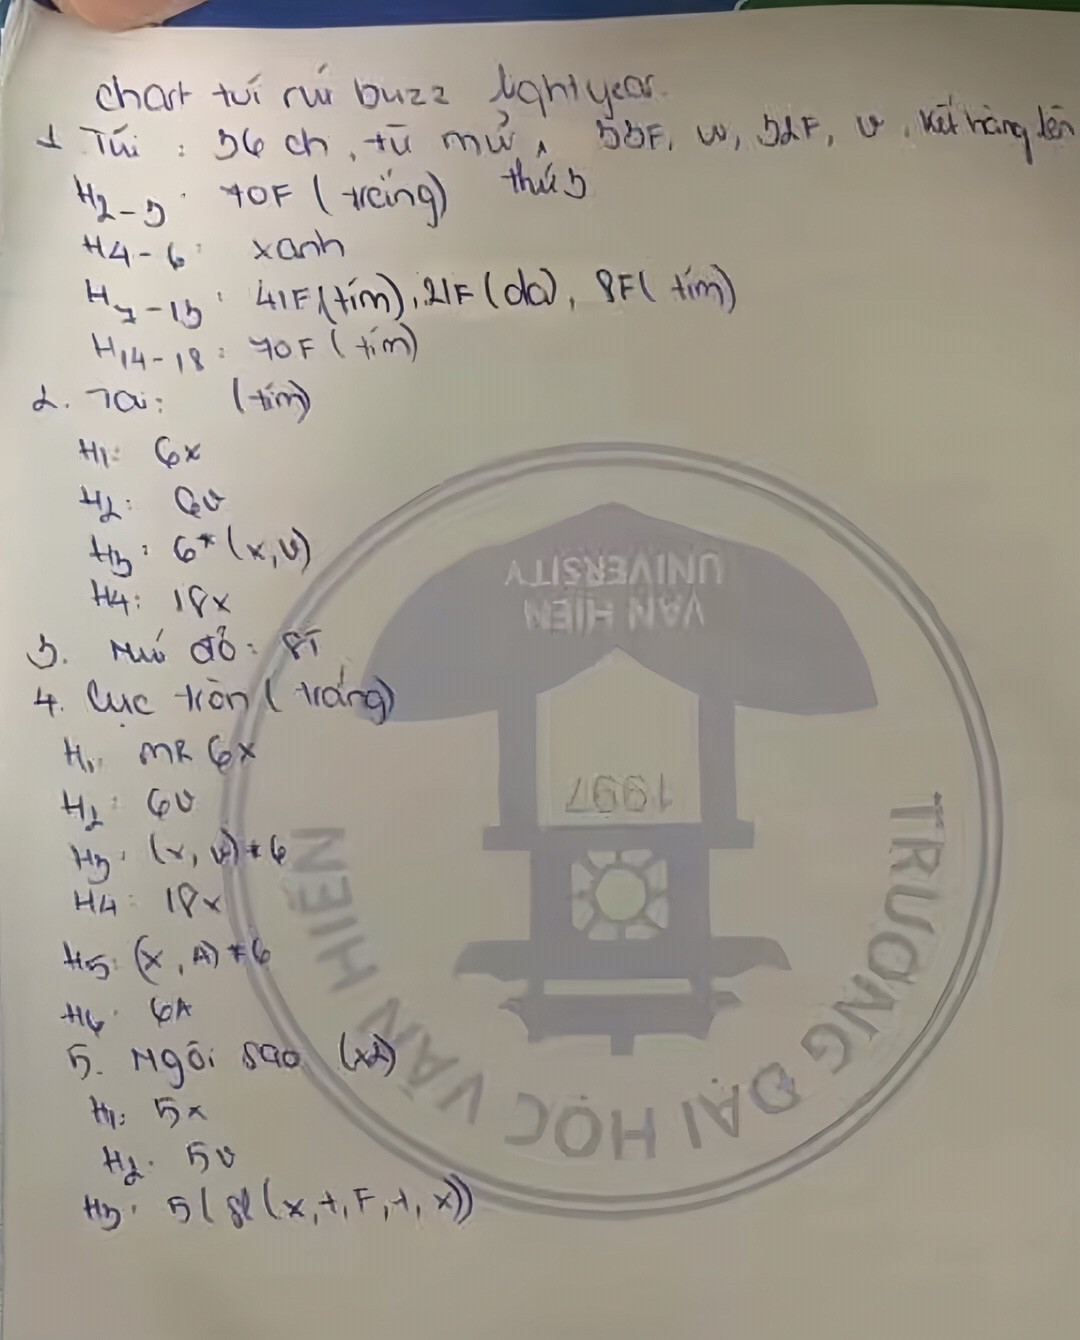 chart túi rút buzz lightyear.
1 Túi : 36 ch, từ mũi thứ 5, 33F, w, 32F, v, kết hàng lên
H2-3: 70F (trắng)
H4-6: xanh
H7-13: 41F (tím), 21F (da), 8F (tím)
H14-18: 70F (tím)
2. Tai: (tím)
H1: 6x
H2: 6v
H3: 6* (x,v)
H4: 18x
3. Mũ đỏ: 8T
4. Cục tròn (trắng)
H1: MR 6x
H2: 6v
H3: (x, v) * 6
H4: 18x
H5: (x, A) * 6
H6: 6A
5. Ngôi sao (x2)
H1: 5x
H2: 5v
H3: 5 ( sl (x, t, F, t, x))
VAN HIEN
UNIVERSITY
1997
TRƯỜNG ĐẠI HỌC VĂN HIẾN